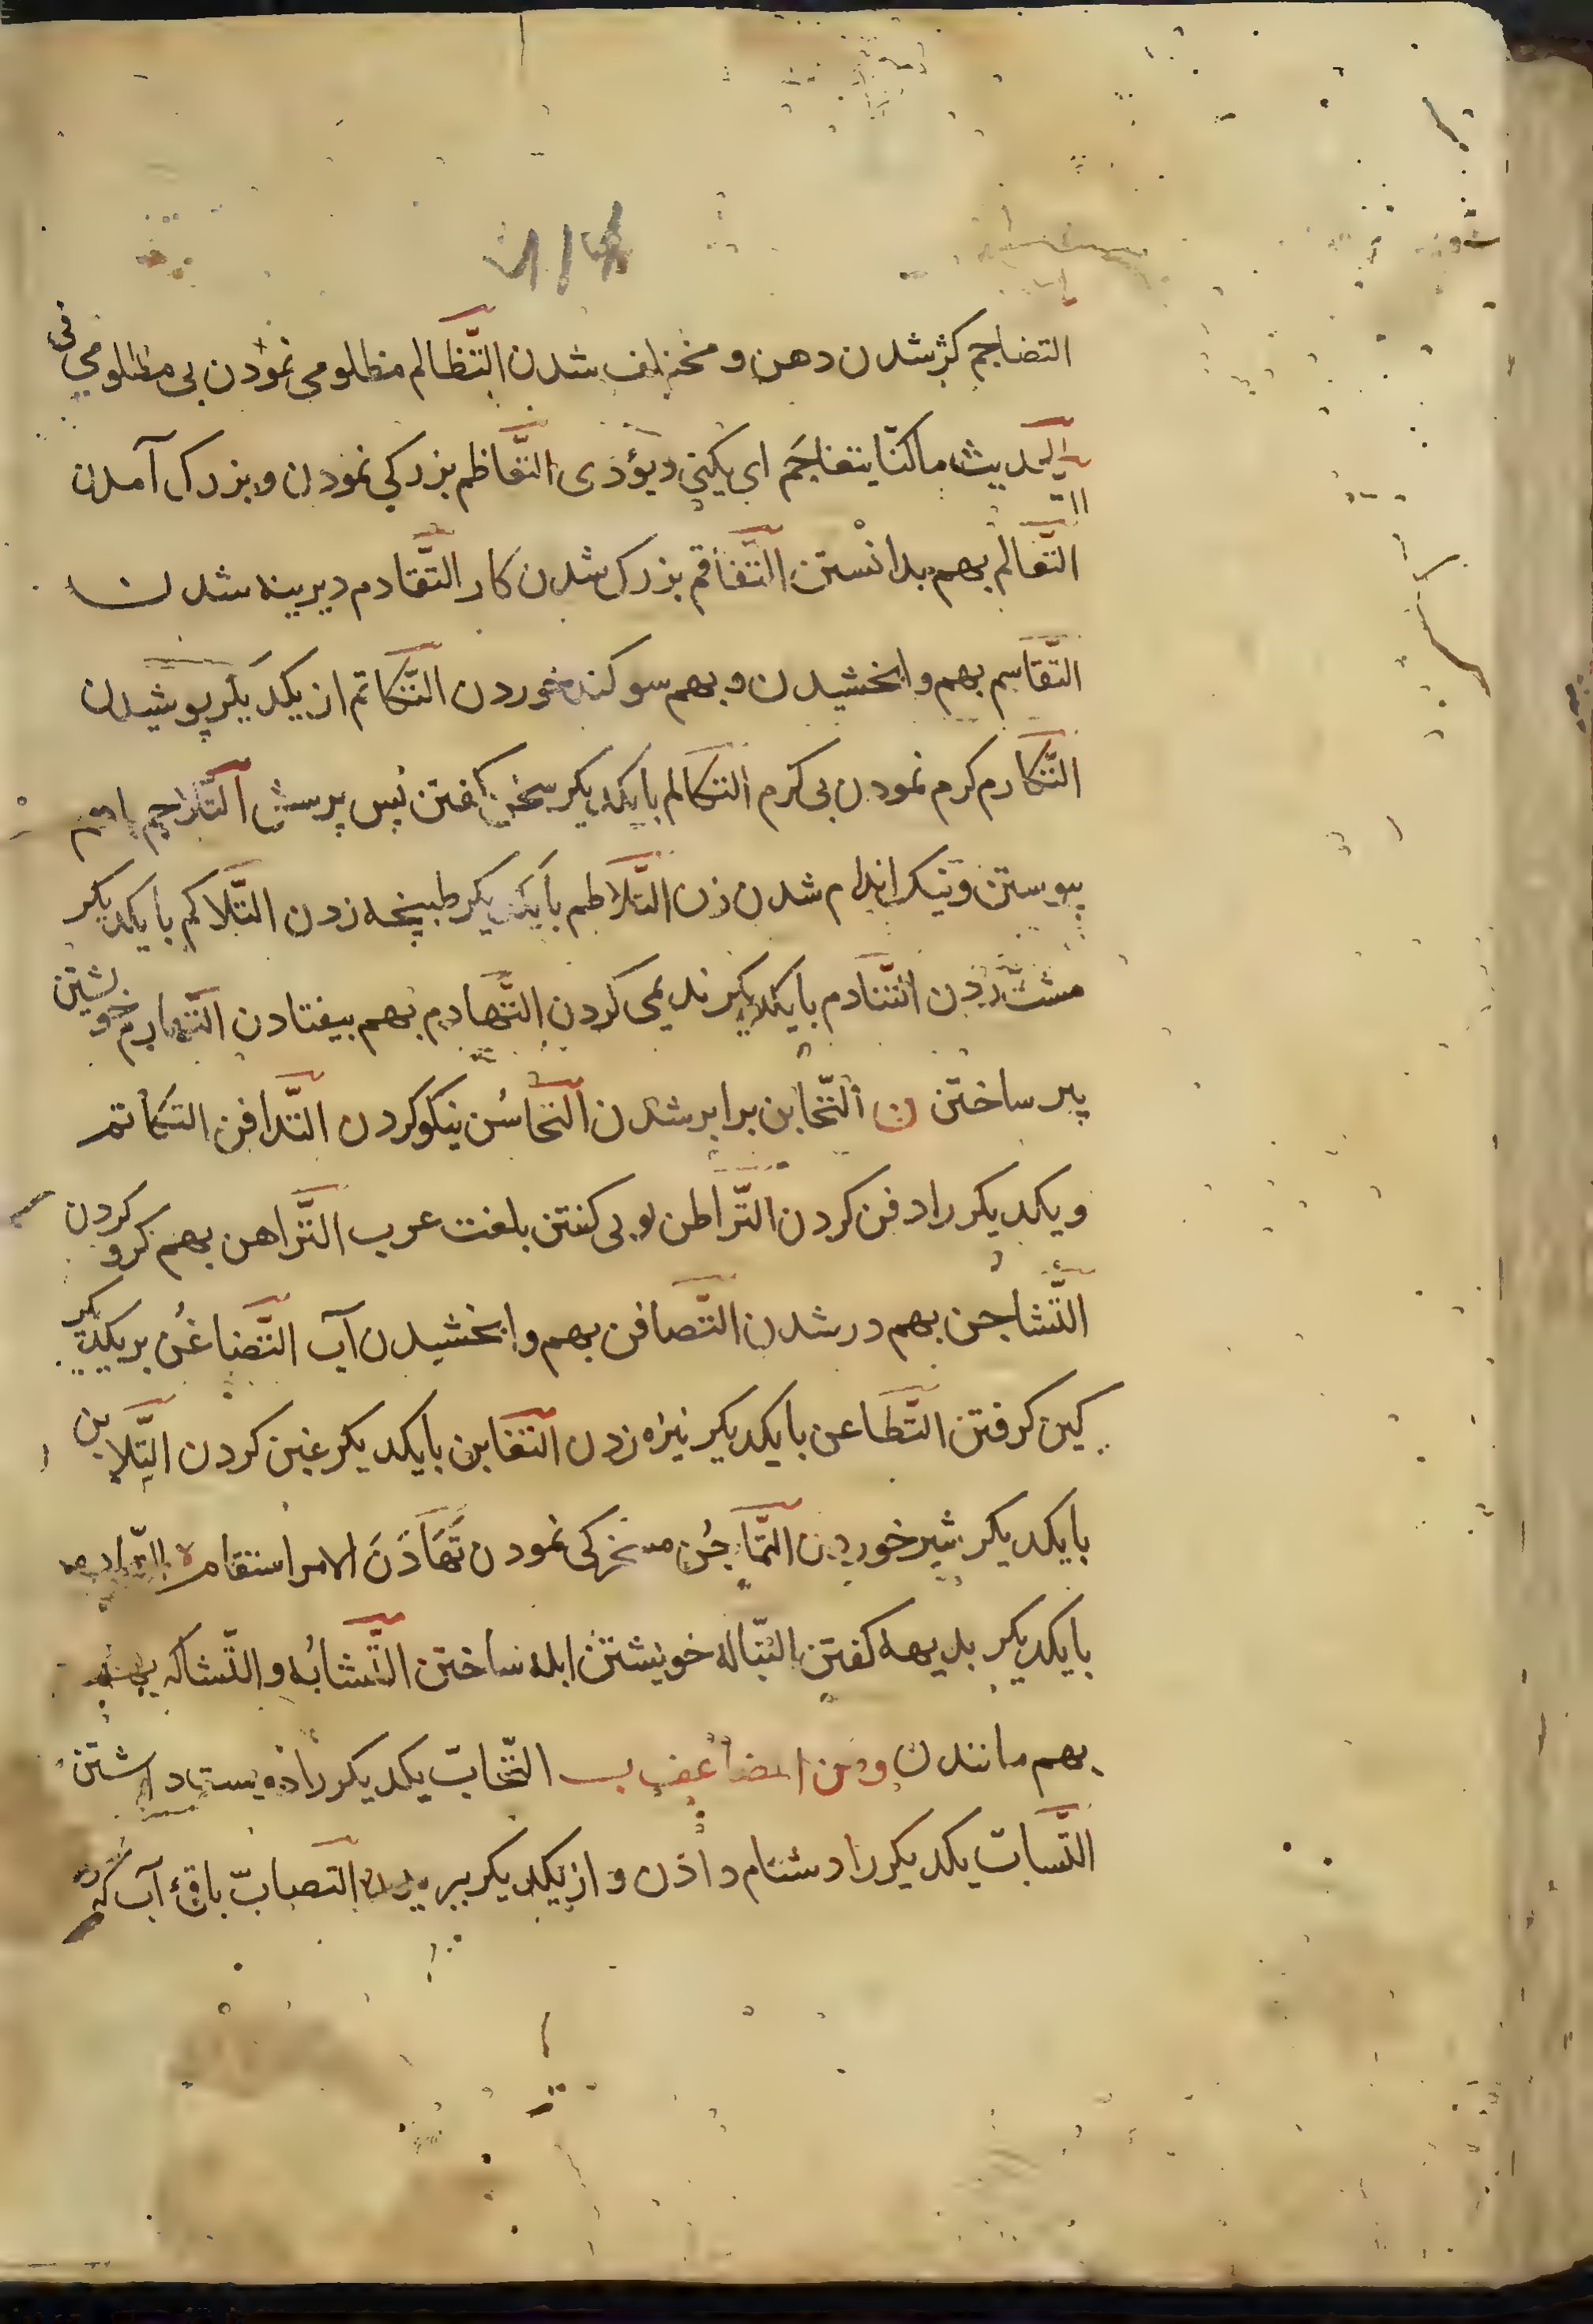 التضاجم کژ شدن دهن و مختلف شدن التَّظالم مظلومی نمودن بی مظلومی فی
الحدیث ما کنّا یتعاجَم ای یکنی و یؤدی التَّعاظم بزرکی نمودن و بزرک آمدن
التَّعالم بهم بدانستن التَّفاقم بزرک شدن کار التَّقادم دیرینه شدن
التَّقاسم بهم وابخشیدن و بهم سوکند خوردن التَّکاتم از یکدیکر پوشیدن
التَّکارم کرم نمودن بی کرم التکالم با یکدیکر سخن کفتن پس پرسش التَّلاحم باهم
پیوستن و نیک اندام شدن زن التَّلاطم با یکدیکر طپنچه زدن التَّلاکم با یکدیکر
مشت زدن التَّنادم با یکدیکر ندیمی کردن التَّهادم بهم بیفتادن التَّهارم خویشتن
پیر ساختن ن التَّخابن برابر شدن التَّحاسُن نیکو کردن التَّدافن التکاتم
و یکدیکر را دفن کردن التَّراطن لوبی کفتن بلغت عرب التَّراهن بهم کرو کردن
التَّشاجن بهم در شدن التَّصافن بهم وابخشیدن آب التَّضاغُن بر یکدیکر
کین کرفتن التَّطاعن با یکدیکر نیزه زدن التغابن با یکدیکر غبن کردن التَّلابن
با یکدیکر شیر خوردن التَّماجُن مسخرکی نمودن تَهَادَنَ الامر استقام ه التّباده
با یکدیکر بدیهه کفتن التَّباله خویشتن ابله ساختن التَّشابُه و التَّشاکه
بهم مانندن ومن المضاعف ب التَّحابّ یکدیکر را دوست داشتن
التَّسابّ یکدیکر را دشنام داذن و از یکدیکر ببریدن التصابّ باقی آب